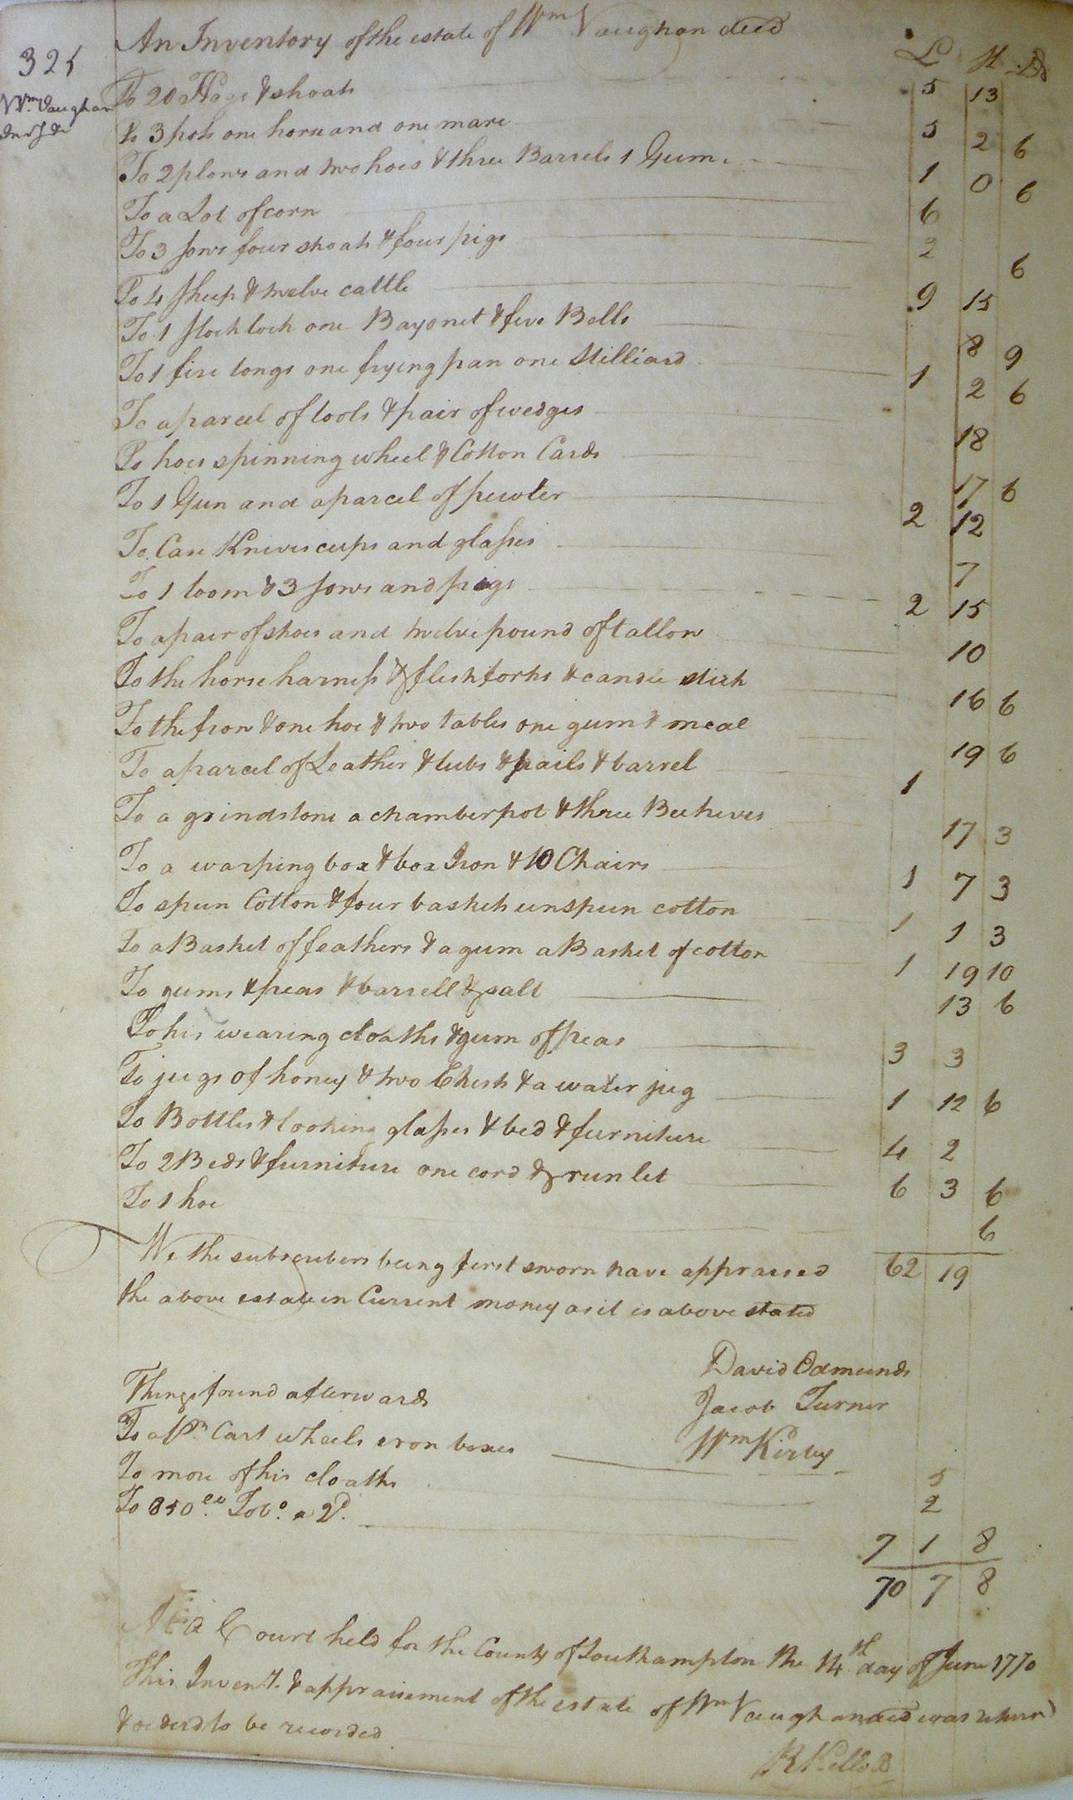 An Inventory of the estate of Wm Vaughan decd
£ S D
325
Wm Vaughan
To 20 Hogs & shoats 5 13
to 3 pots one horse and one mare 5 2 6
To 2 plows and two hoes & three Barrels 1 Gum 1 0 6
To a Lot of corn 6
To 3 sows four shoats & four pigs 2 6
To 4 sheep & twelve cattle 9 15
To 1 stock lock one Bayonet & five Bells 8 9
To 1 fire tongs one frying pan one Stilliard 1 2 6
To a parcel of tools & pair of wedges 18
To hoes spinning wheel & Cotton Cards 17 6
To 1 Gun and a parcel of pewter 2 12
To Case Knives cups and glasses 7
To 1 loom & 3 sows and pigs 2 15
To a pair of shoes and twelve pound of tallow 10
To the horse harness & flesh forks & candle stick 16 6
To the Iron & one hoe & two tables one gum & meal 19 6
To a parcel of Leather & tubs & pails & barrel 1
To a grindstone a chamberpot & three Beehives 17 3
To a warping box & box Iron & 10 Chairs 1 7 3
To spun Cotton & four baskets unspun cotton 1 1 3
To a Basket of feathers & a gum a Basket of cotton 1 19 10
To gums & peas & barrell & salt 13 6
To his wearing cloaths & gum of peas 3 3
To jugs of honey & two Chests & a water jug 1 12 6
To Bottles & looking glasses & bed & furniture 4 2
To 2 Beds & furniture one cord & runlet 6 3 6
To 1 hoe 6
We the subscribers being first sworn have appraised 62 19
the above estate in Current money as it is above stated
David Edmunds
Things found afterwards
Jacob Turner
To a Pr. Cart wheels iron boxes
Wm Kirby
To more of his cloaths 5
To 850 Tobo. a 2d. 2
7 1 8
70 7 8
At a Court held for the County of Southampton the 14th day of June 1770
This Invent. & appraisement of the estate of Wm Vaughan decd was return'd
& orderd to be recorded
R Kello